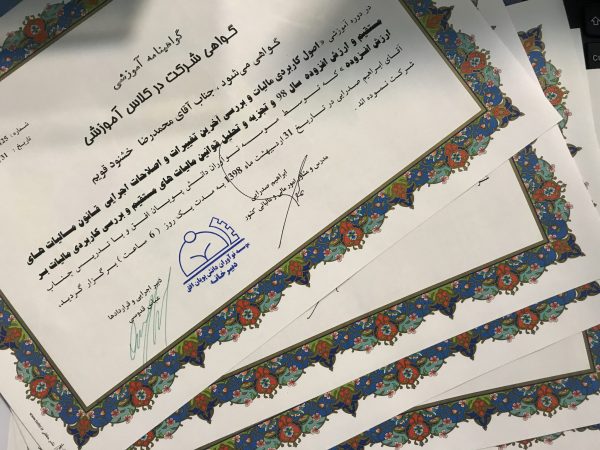 گواهینامه آموزشی
گواهی شرکت در کلاس آموزشی
گواهی می‌شود، جناب آقای محمدرضا خشنود قویم
در دوره آموزشی « اصول کاربردی مالیات و بررسی آخرین تغییرات و اصلاحات اجرایی قانون مالیات های
مستقیم و ارزش افزوده سال 98 و تجزیه و تحلیل قوانین مالیات های مستقیم و بررسی کاربردی مالیات بر
ارزش افزوده » که توسط موسسه نوآوران دانش پویان افق و با تدریس جناب
آقای ابراهیم صدرایی در تاریخ 31 اردیبهشت ماه 1398 به مدت یک روز ( 6 ساعت ) برگزار گردید،
شرکت نموده اند.
ابراهیم صدرایی
مدرس و امور مالی و مالیاتی کشور
دبیر اجرایی و قراردادها
قدوسی
موسسه نوآوران دانش پویان افق
دبیرخانه
شماره:
تاریخ: